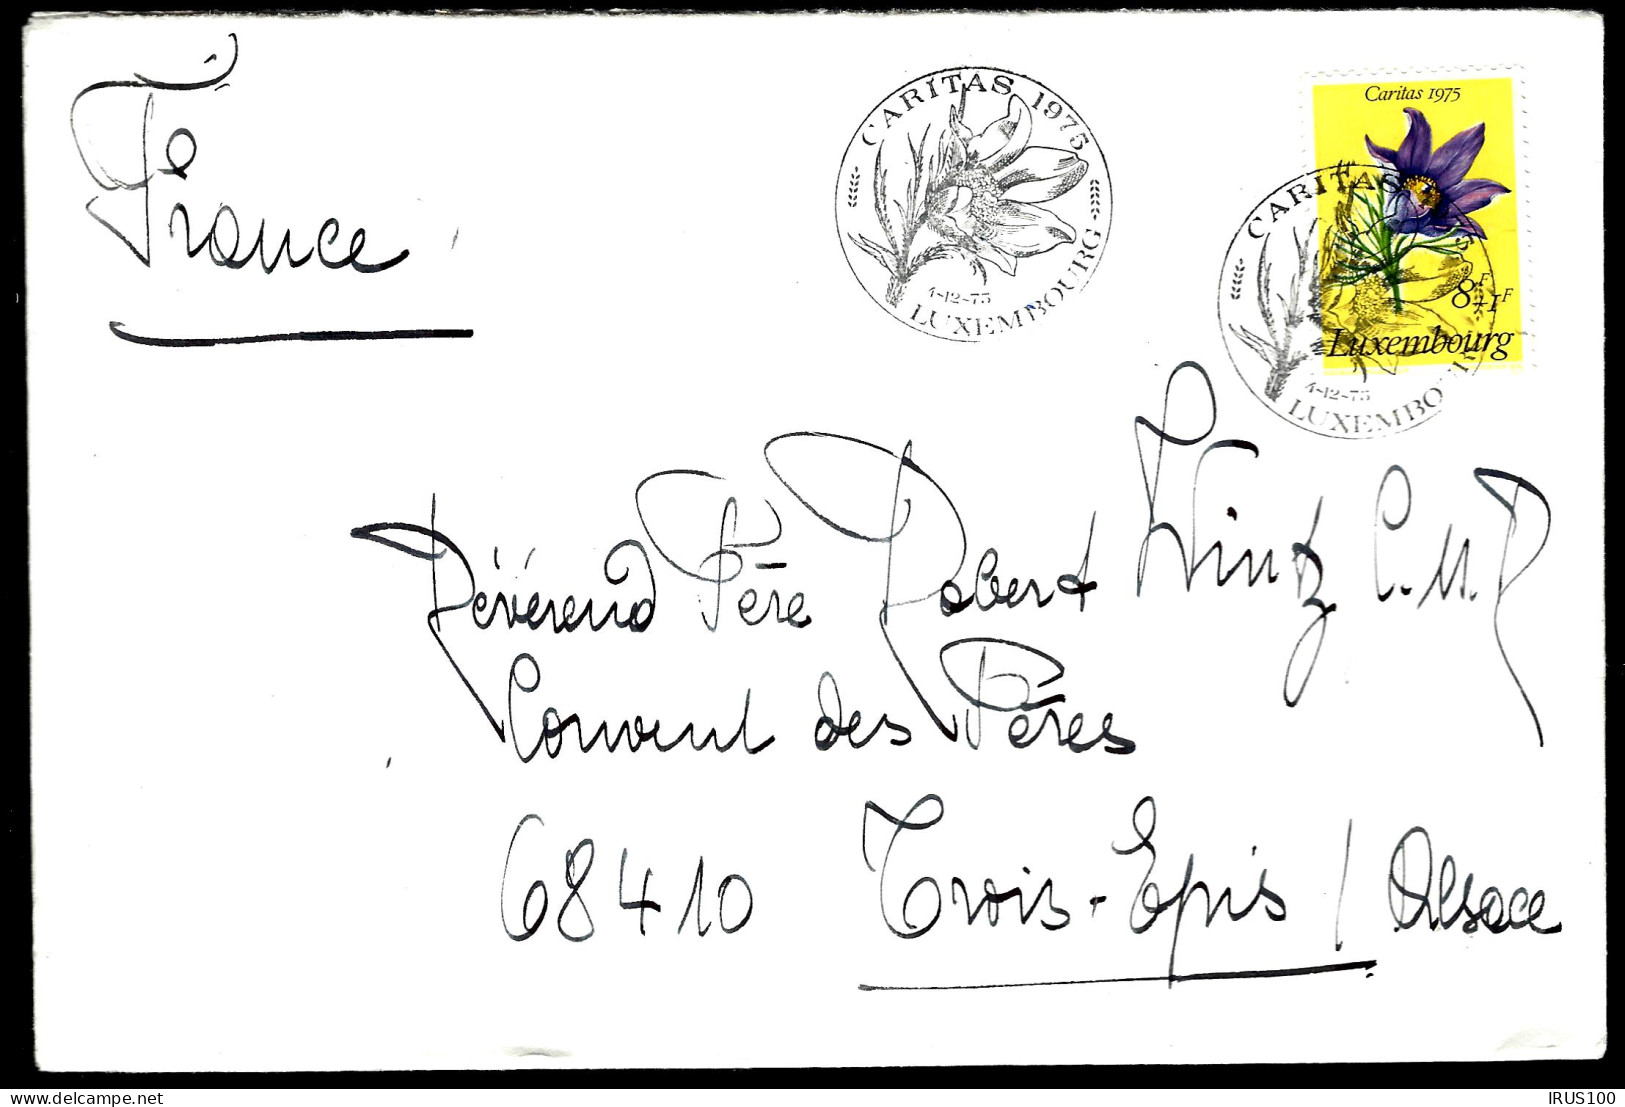 France
CARITAS 1975
4-12-75
LUXEMBOURG
Caritas 1975
8F+1F
Luxembourg
CARITAS 75
4-12-75
LUXEMBOURG
Révérend Père Robert Wintz C.M.R
Couvent des Pères
68410 Trois-Epis / Alsace
IRUS100